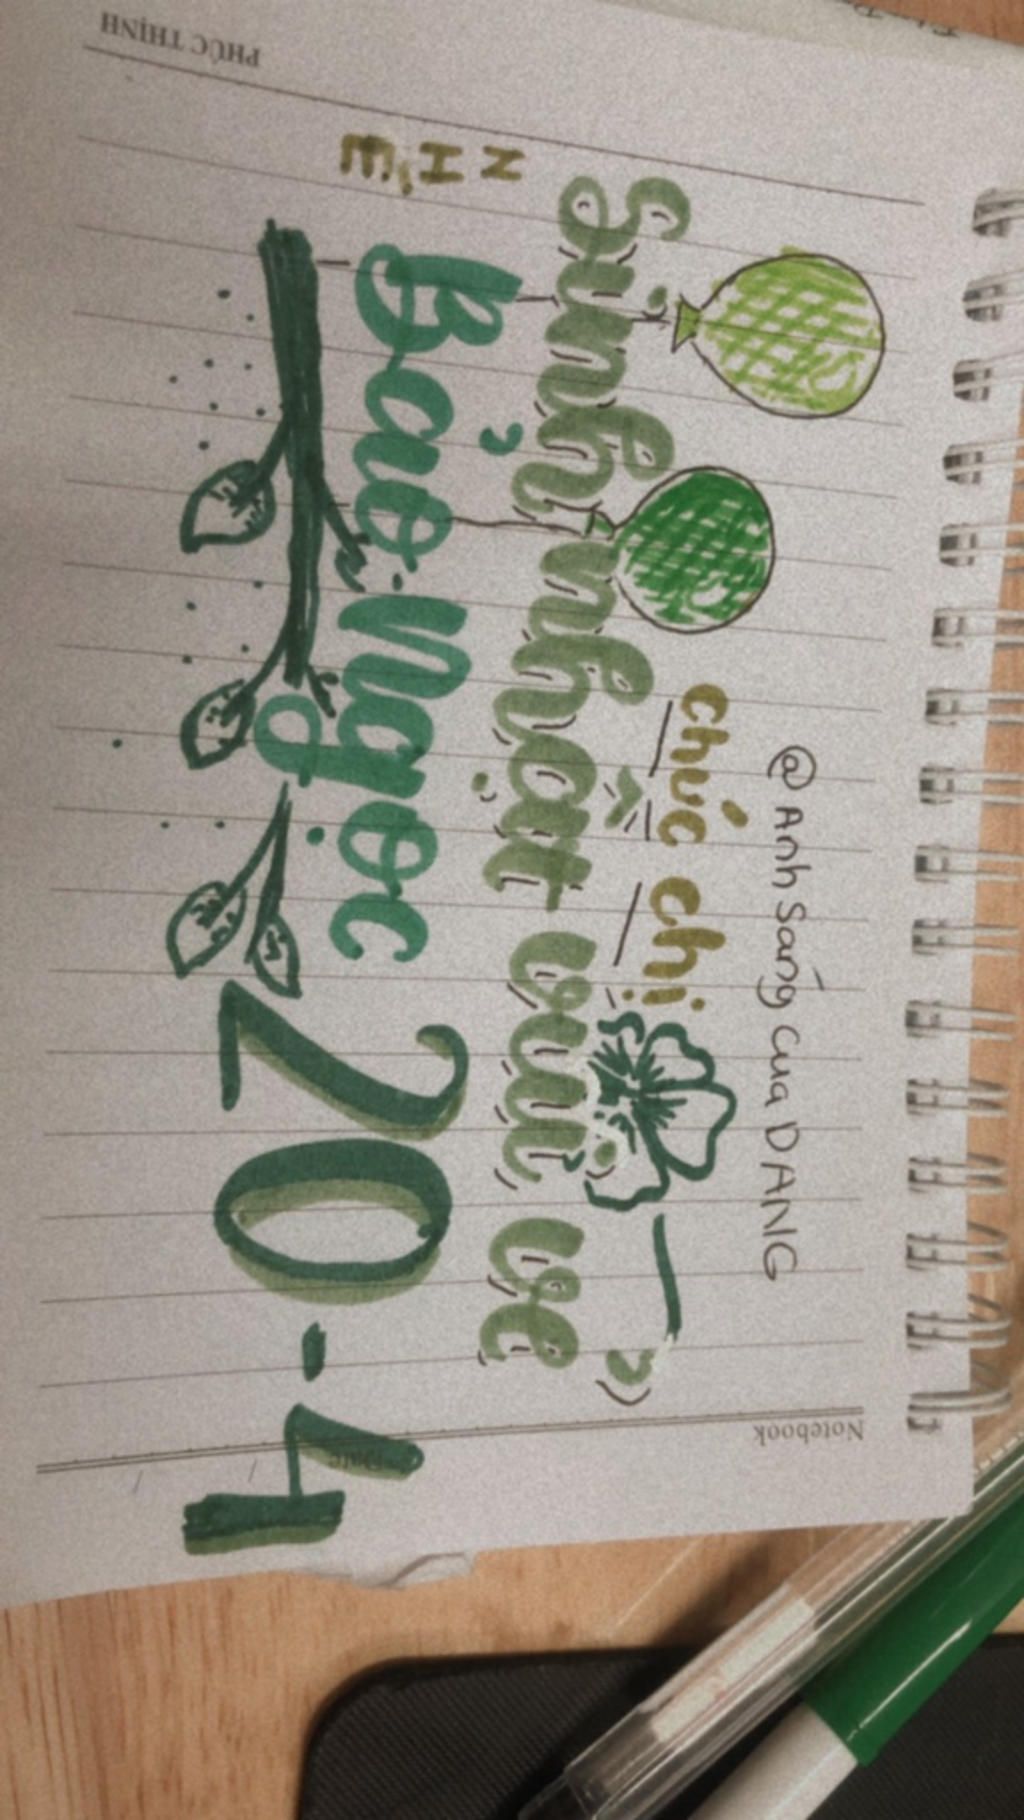 @ Anh Sáng của DANG
chúc chị
Sinh nhật vui vẻ
NHÉ
Bảo Ngọc
20-4
Notebook
Date
PHÚC THỊNH